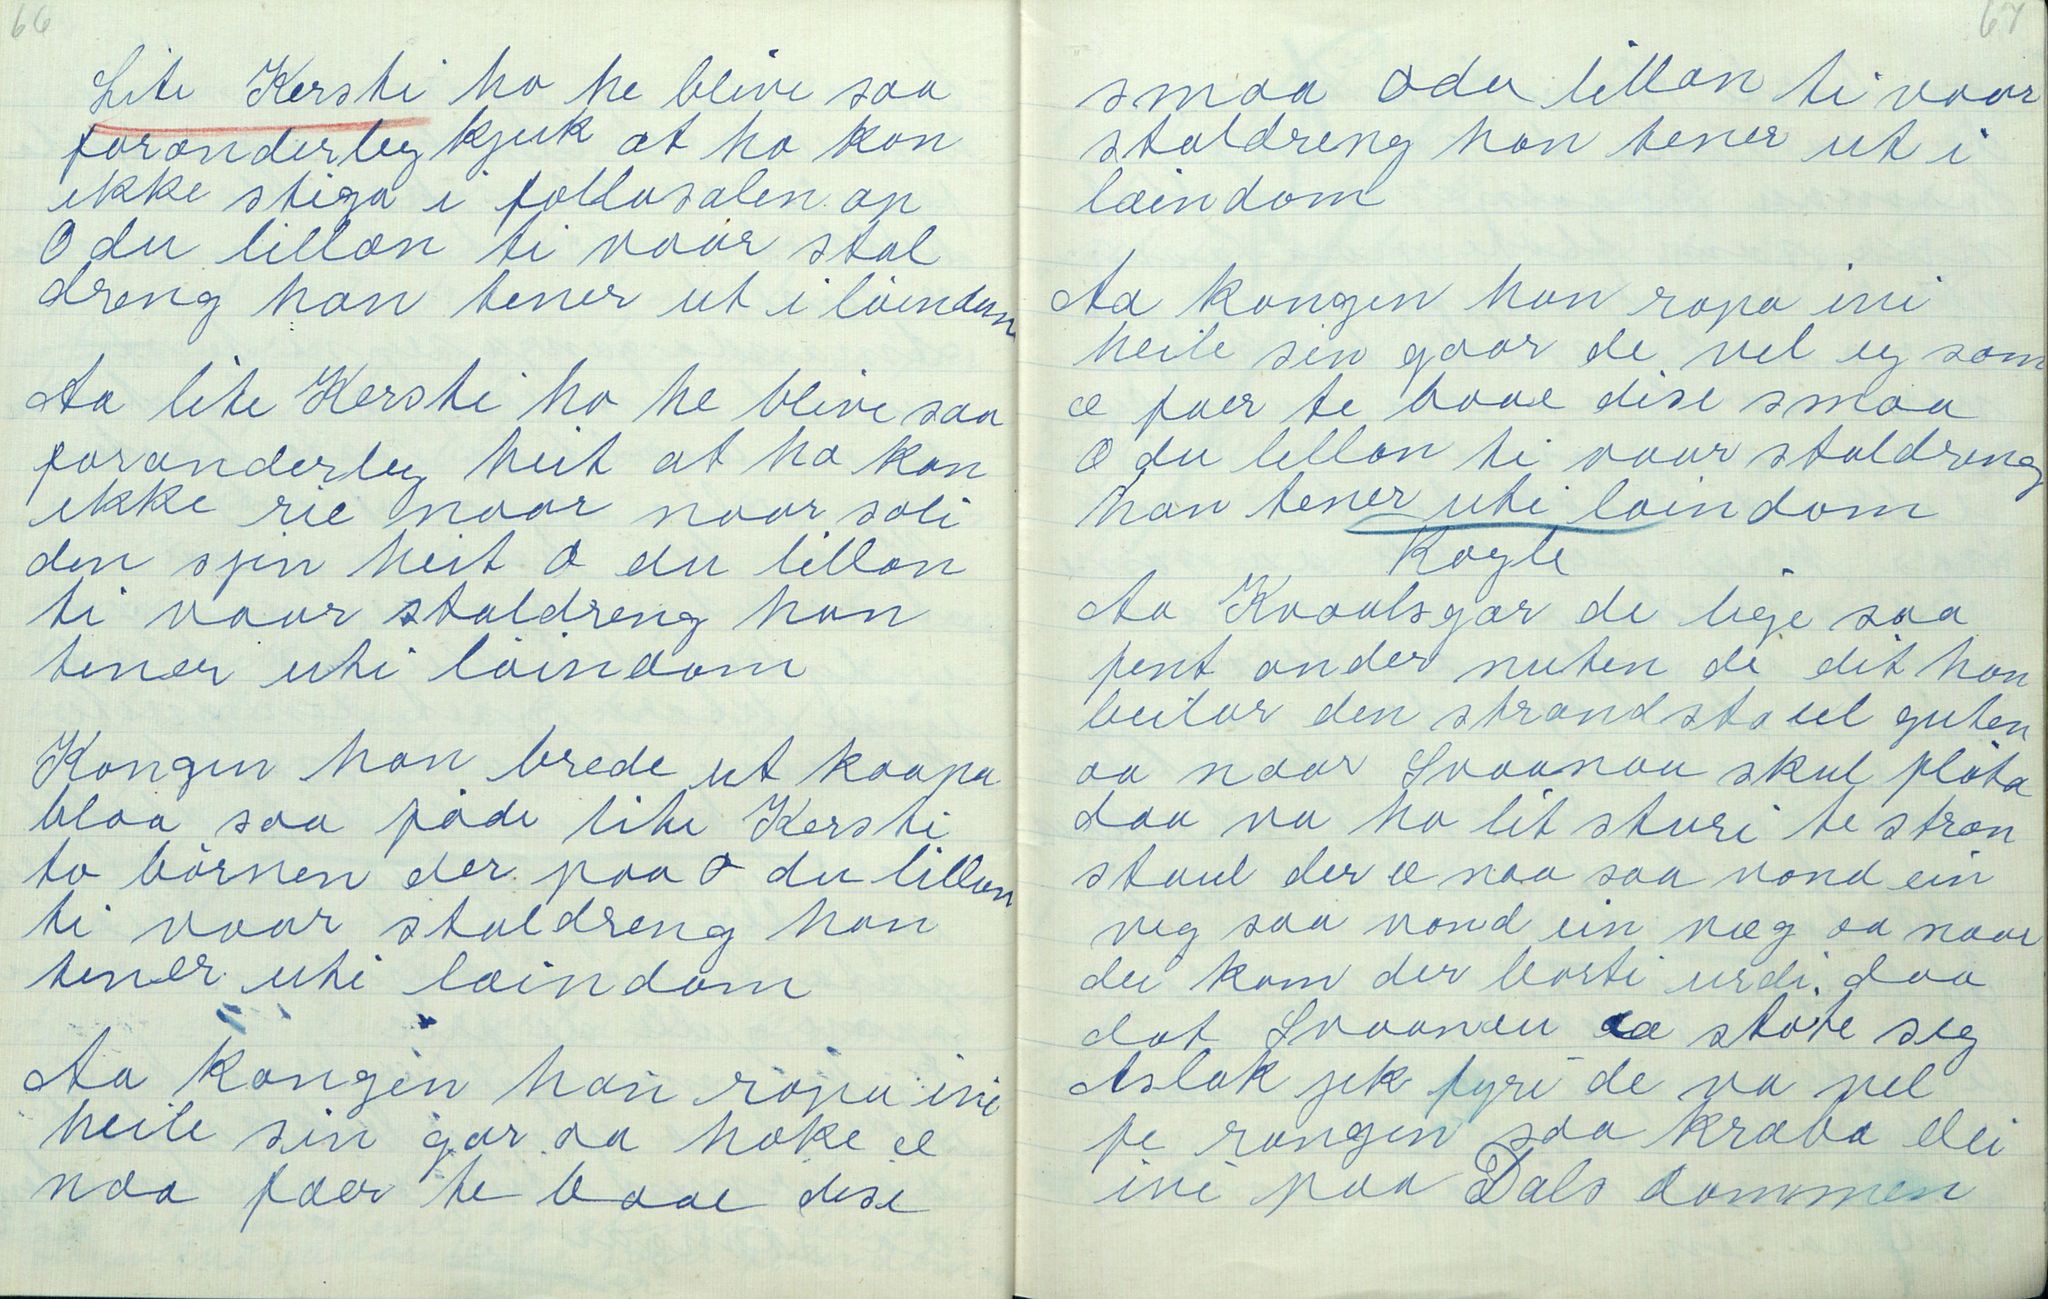 66
Lite Kersti ho he blive saa
foranderleg kjuk at ho kan
ikke stiga i follasalen op
O du lillan ti voor stal
dreng han tener ut i löindom
Aa lite Kersti ho he blive saa
foranderleg heit at ho kan
ikke rie naar naar soli
den sjin heit O du lillan
ti voor staldreng han
tener uti löindom
Kongen han brede ut kaapa
blaa saa föde lite Kersti
to börnen der paa O du lillan
ti voor staldreng han
tener uti læindom
Aa kongen han ropa ini
heile sin gar aa hoke æ
naa faer te baae disi
67
smaa O du lillan ti voor
staldreng han tener ut i
læindom
Aa kongen han ropa ini
heile sin gaar de vel eg som
æ faer te baae dise smaa
O du lillan ti voor staldreng
han tener uti löindom
Rogle
Aa Kvaalsgar de lige saa
pent onder nuten de dit han
beitar den strandstaul guten
aa naar Svaanau skul flöta
daa va ho lit sturi te stran
staul der æ naa saa vond ein
veg saa vond ein væg aa naar
dei kom der borti urdi. daa
dat Svaanau aa støte seg
Aslak jek fyri de va vel
fe rangen saa kraba dei
ivi paa Dals dammen